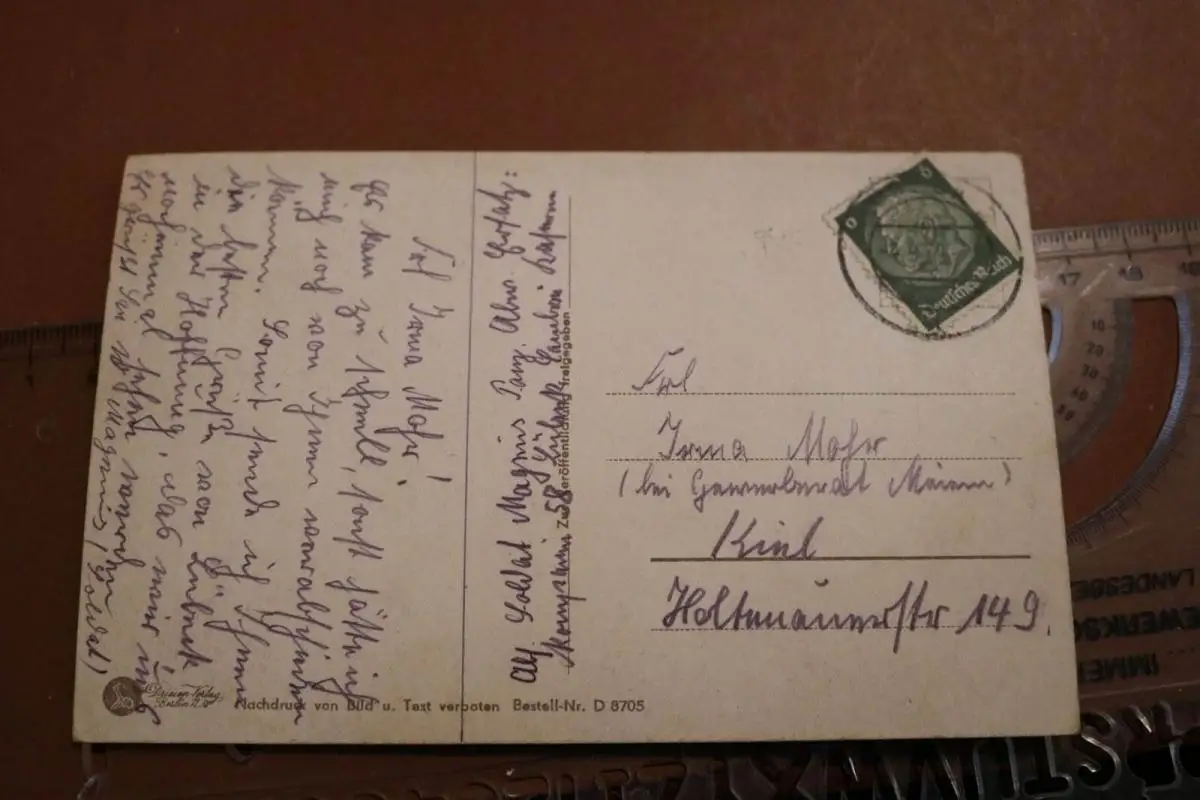 Frl. Irma Mohr!
Es kam zu schnell, sonst hätte ich
mich noch von Ihnen verabschieden
können. Somit sende ich Ihnen
die besten Grüße von Lübeck
in der Hoffnung, das wir uns
nochmal sehen werden
Es grüßt Sie Magnus (Soldat)
Abs. Soldat Magnus Panz. Abw. Ersatz:
Kompanie 58 Lübeck
Zur Veröffentlichung freigegeben
6
6
Deutsches Reich
Frl
Irma Mohr
(bei Gewerberat
Kiel
Holtenauerstr 149.
Verlag
Berlin
Nachdruck von Bild u. Text verboten Bestell-Nr. D 8705
17
18
10
20
30
40
50
LANDESBE
IMMER